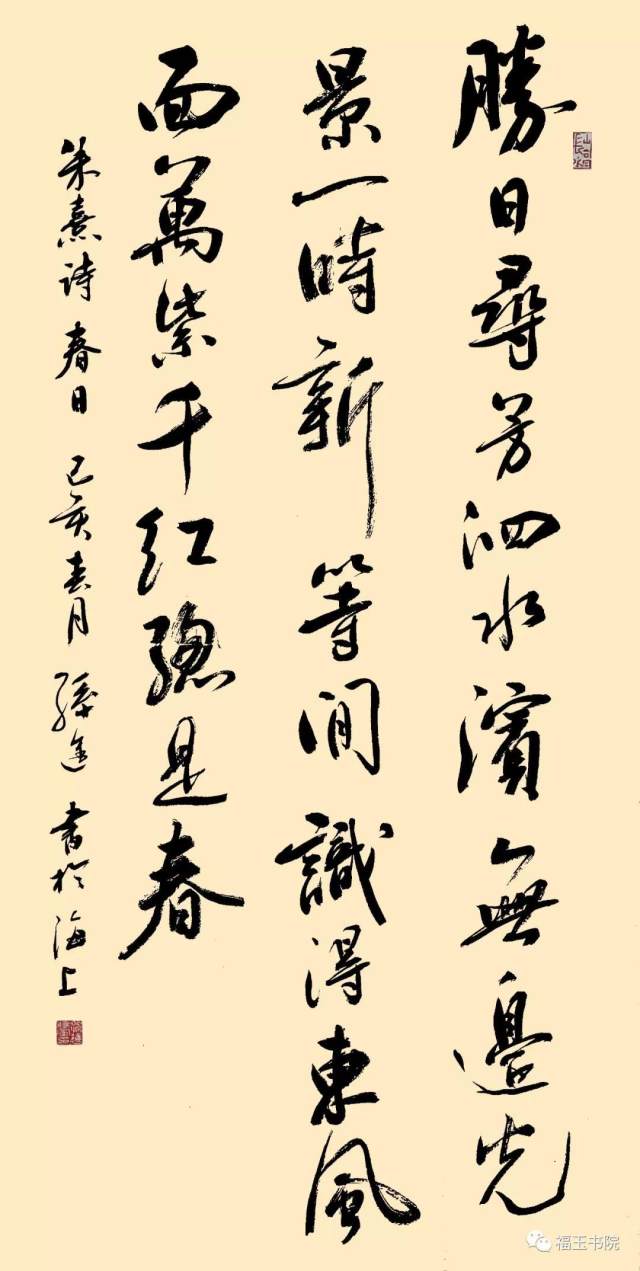 勝日尋芳泗水濱無邊光
景一時新等閒識得東風
面萬紫千紅總是春
朱熹诗 春日 己亥春月 孫進 書於海上
福玉书院